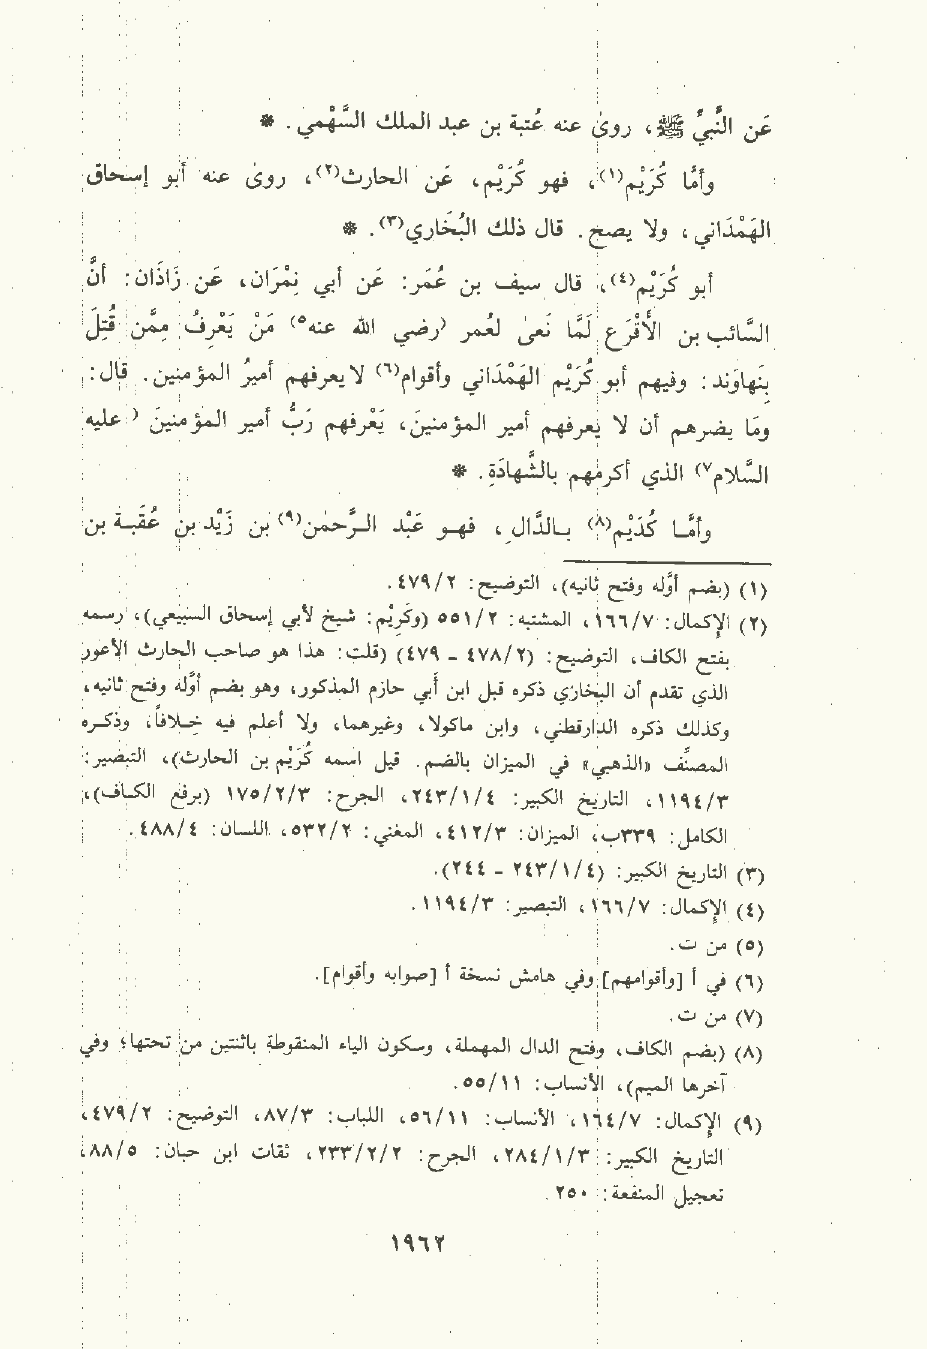 عَن النَّبيِّ ﷺ، روىٰ عنه عُتبة بن عبد الملك السَّهْمي. *
وأمَّا كُرَيْم(١)، فهو كُرَيْم، عَن الحارث(٢)، روى عنه أبو إسحاق
الهَمْدَاني، ولا يصح. قال ذلك البُخَاري(٣). *
أبو كُرَيْم(٤)، قال سيف بن عُمَر: عَن أبي نِمْرَان، عَن زَاذَان: أنَّ
السَّائب بن الأَقْرَع لَمَّا نَعىٰ لعُمر (رضي الله عنه)٥ مَنْ يَعْرِفُ مِمَّن قُتِلَ
بِنَهاوَند: وفيهم أبو كُرَيْم الهَمْدَاني وأقوام(٦) لا يعرفهم أميرُ المؤمنين. قال:
ومَا يضرهم أن لا يعرفهم أمير المؤمنينَ، يَعْرفهم رَبُّ أمير المؤمنينَ (عليه
السَّلام)٧ الذي أكرمهم بالشَّهادَةِ. *
وأمَّـا كُدَيْم(٨) بـالدَّال، فهـو عَبْد الـرَّحمٰن(٩) بن زَيْد بن عُقَبـة بن
(١) (بضم أوَّله وفتح ثانيه)، التوضيح: ٤٧٩/٢.
(٢) الإكمال: ١٦٦/٧، المشتبه: ٥٥١/٢ (وكَرِيْم: شيخ لأبي إسحاق السبيعي)، رسمه
بفتح الكاف، التوضيح: (٤٧٨/٢ - ٤٧٩) (قلت: هذا هو صاحب الحارث الأعور
الذي تقدم أن البخاري ذكره قبل ابن أبي حازم المذكور، وهو بضم أوَّله وفتح ثانيه،
وكذلك ذكره الدارقطني، وابن ماكولا، وغيرهما، ولا أعلم فيه خـلافاً، وذكـره
المصنِّف «الذهبي» في الميزان بالضم. قيل اسمه كُرَيْم بن الحارث)، التبصير:
١١٩٤/٣، التاريخ الكبير: ٢٤٣/١/٤، الجرح: ١٧٥/٢/٣ (برفع الكـاف)،
الكامل: ٣٣٩ب، الميزان: ٤١٢/٣، المغني: ٥٣٢/٢، اللسان: ٤٨٨/٤.
(٣) التاريخ الكبير: (٢٤٣/١/٤ - ٢٤٤).
(٤) الإكمال: ١٦٦/٧، التبصير: ١١٩٤/٣.
(٥) من ت.
(٦) في أ [وأقوامهم] وفي هامش نسخة أ [صوابه وأقوام].
(٧) من ت.
(٨) (بضم الكاف، وفتح الدال المهملة، وسكون الياء المنقوطة باثنتين من تحتها؛ وفي
آخرها الميم)، الأنساب: ٥٥/١١.
(٩) الإكمال: ١٦٤/٧، الأنساب: ٥٦/١١، اللباب: ٨٧/٣، التوضيح: ٤٧٩/٢،
التاريخ الكبير: ٢٨٤/١/٣، الجرح: ٢٣٣/٢/٢، ثقات ابن حبان: ٨٨/٥،
تعجيل المنفعة: ٢٥٠.
١٩٦٢